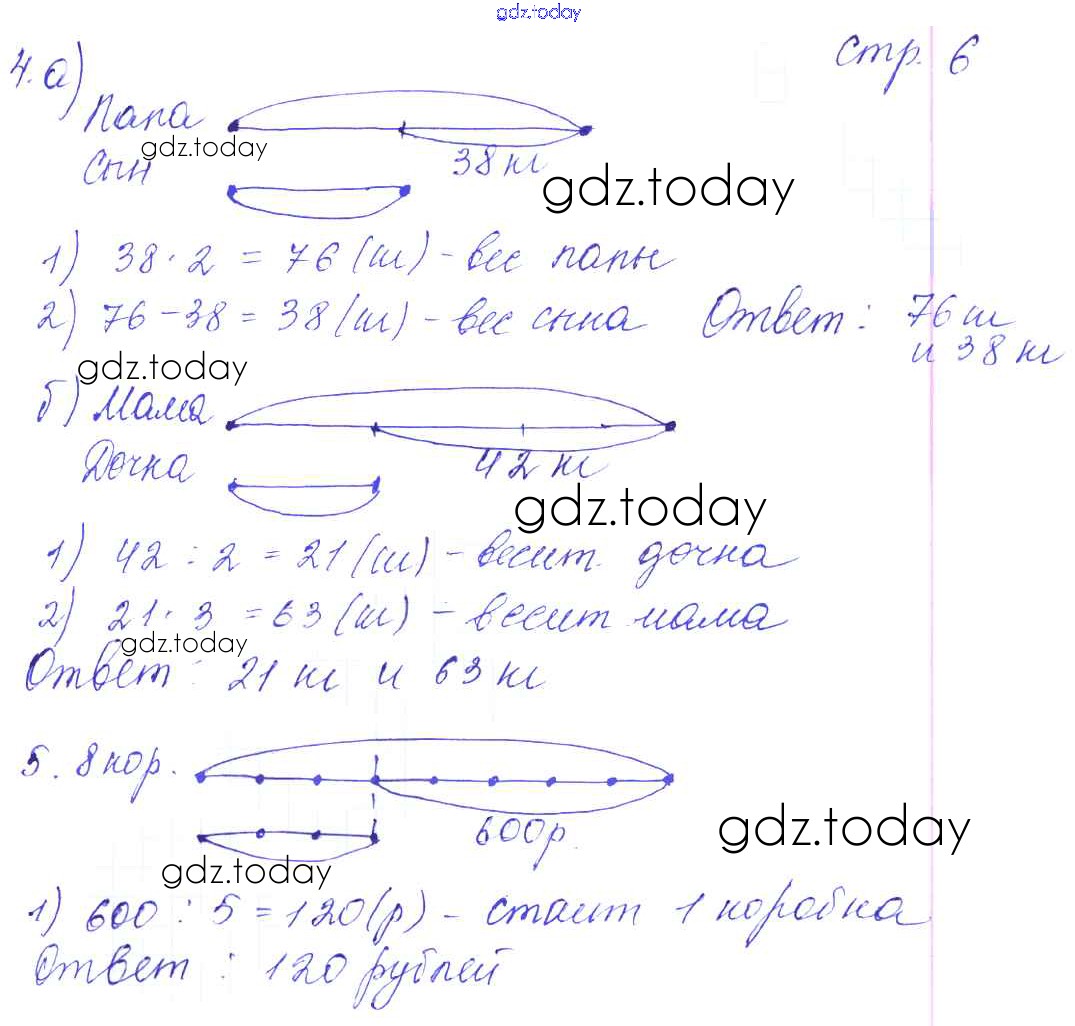 gdz.today
стр. 6
4. а)
Папа
gdz.today
Сын
38 кг
gdz.today
1) 38 · 2 = 76 (кг) - вес папы
2) 76 - 38 = 38 (кг) - вес сына Ответ: 76 кг
и 38 кг
gdz.today
б) Мама
Дочка
42 кг
gdz.today
1) 42 : 2 = 21 (кг) - весит дочка
2) 21 · 3 = 63 (кг) - весит мама
gdz.today
Ответ : 21 кг и 63 кг
5. 8 кор.
600р.
gdz.today
gdz.today
1) 600 : 5 = 120 (р) - стоит 1 коробка
Ответ : 120 рублей